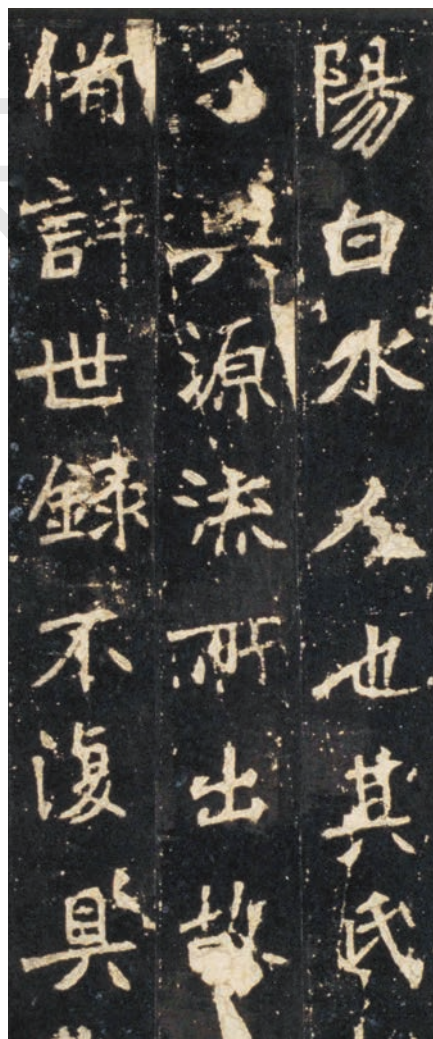 陽白水人也其氏
源流所出故
備詳世録不復具